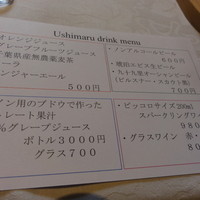 Ushimaru drink menu
オレンジジュース
グレープフルーツジュース
千葉県産無農薬麦茶
コーラ
ジンジャーエール
500円
・ノンアルコールビール
600円
・横田エビス生ビール
・九十九里オーシャンビール
(ピルスナー・スタウト他)
700円
イン用のブドウで作った
トレート果汁
%グレープジュース
ボトル3000円
グラス700
・ピッコロサイズ200ml
スパークリングワイ
980
・グラスワイン